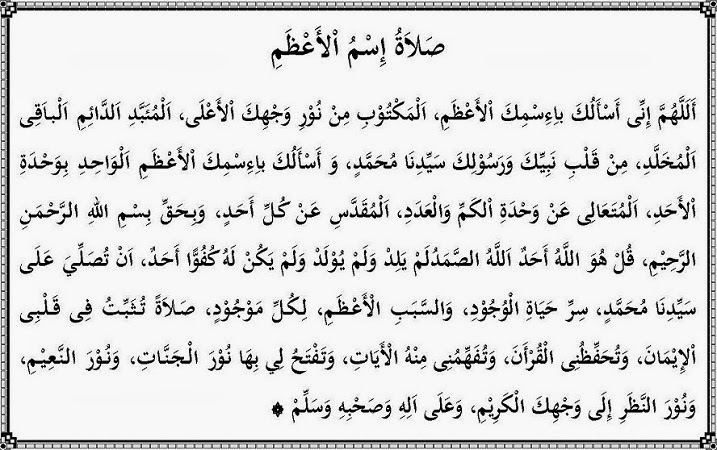 صَلَاةُ إِسْمُ اْلأَعْظَمِ
أَللَّهُمَّ إِنِّى أَسْأَلُكَ بِاءِسْمِكَ اْلأَعْظَمِ، اَلْمَكْتُوْبِ مِنْ نُوْرِ وَجْهِكَ اْلأَعْلَى، اَلْمُئَبَّدِ اَلدَّائِمِ اَلْباَقِى
اَلْمُخَلَّدِ، مِنْ قَلْبِ نَبِيِّكَ وَرَسُوْلِكَ سَيِّدِنَا مُحَمَّدٍ، وَ أَسْأَلُكَ بِاءِسْمِكَ اْلأَعْظَمِ اَلْوَاحِدِ بِوَحْدَةِ
اْلأَحَدِ، اَلْمُتَعَالِى عَنْ وَحْدَةِ اْلكَمِّ وَالْعَدَدِ، اَلْمُقَدَّسِ عَنْ كُلِّ أَحَدٍ، وَبِحَقِّ بِسْمِ اللهِ الرَّحْمَنِ
الرَّحِيْمِ، قُلْ هُوَ اللَّهُ أَحَدٌ اَللَّهُ الصَّمَدُلَمْ يَلِدْ وَلَمْ يُوْلَدْ وَلَمْ يَكُنْ لَهُ كُفُوًا أَحَدٌ، اَنْ تُصَلِّيَ عَلَى
سَيِّدِنَا مُحَمَّدٍ، سِرِّ حَيَاةِ الْوُجُوْدِ، وَالسَّبَبِ الْأَعْظَمِ، لِكُلِّ مَوْجُوْدٍ، صَلاَةً تُثَبِّتُ فِى قَلْبِى
اْلإِيْمَانَ، وَتُحَفِّظُنِى الْقُرْأَنَ، وَتُفَهِّمُنِى مِنْهُ الْأَيَاتِ، وَتَفْتَحُ لِي بِهَا نُوْرَ الْجَنَّاتِ، وَنُوْرَ النَّعِيْمِ،
وَنُوْرَ النَّظَرِ إِلَى وَجْهِكَ الْكَرِيْمِ، وَعَلَى اَلِهِ وَصَحْبِهِ وَسَلِّمْ ۞